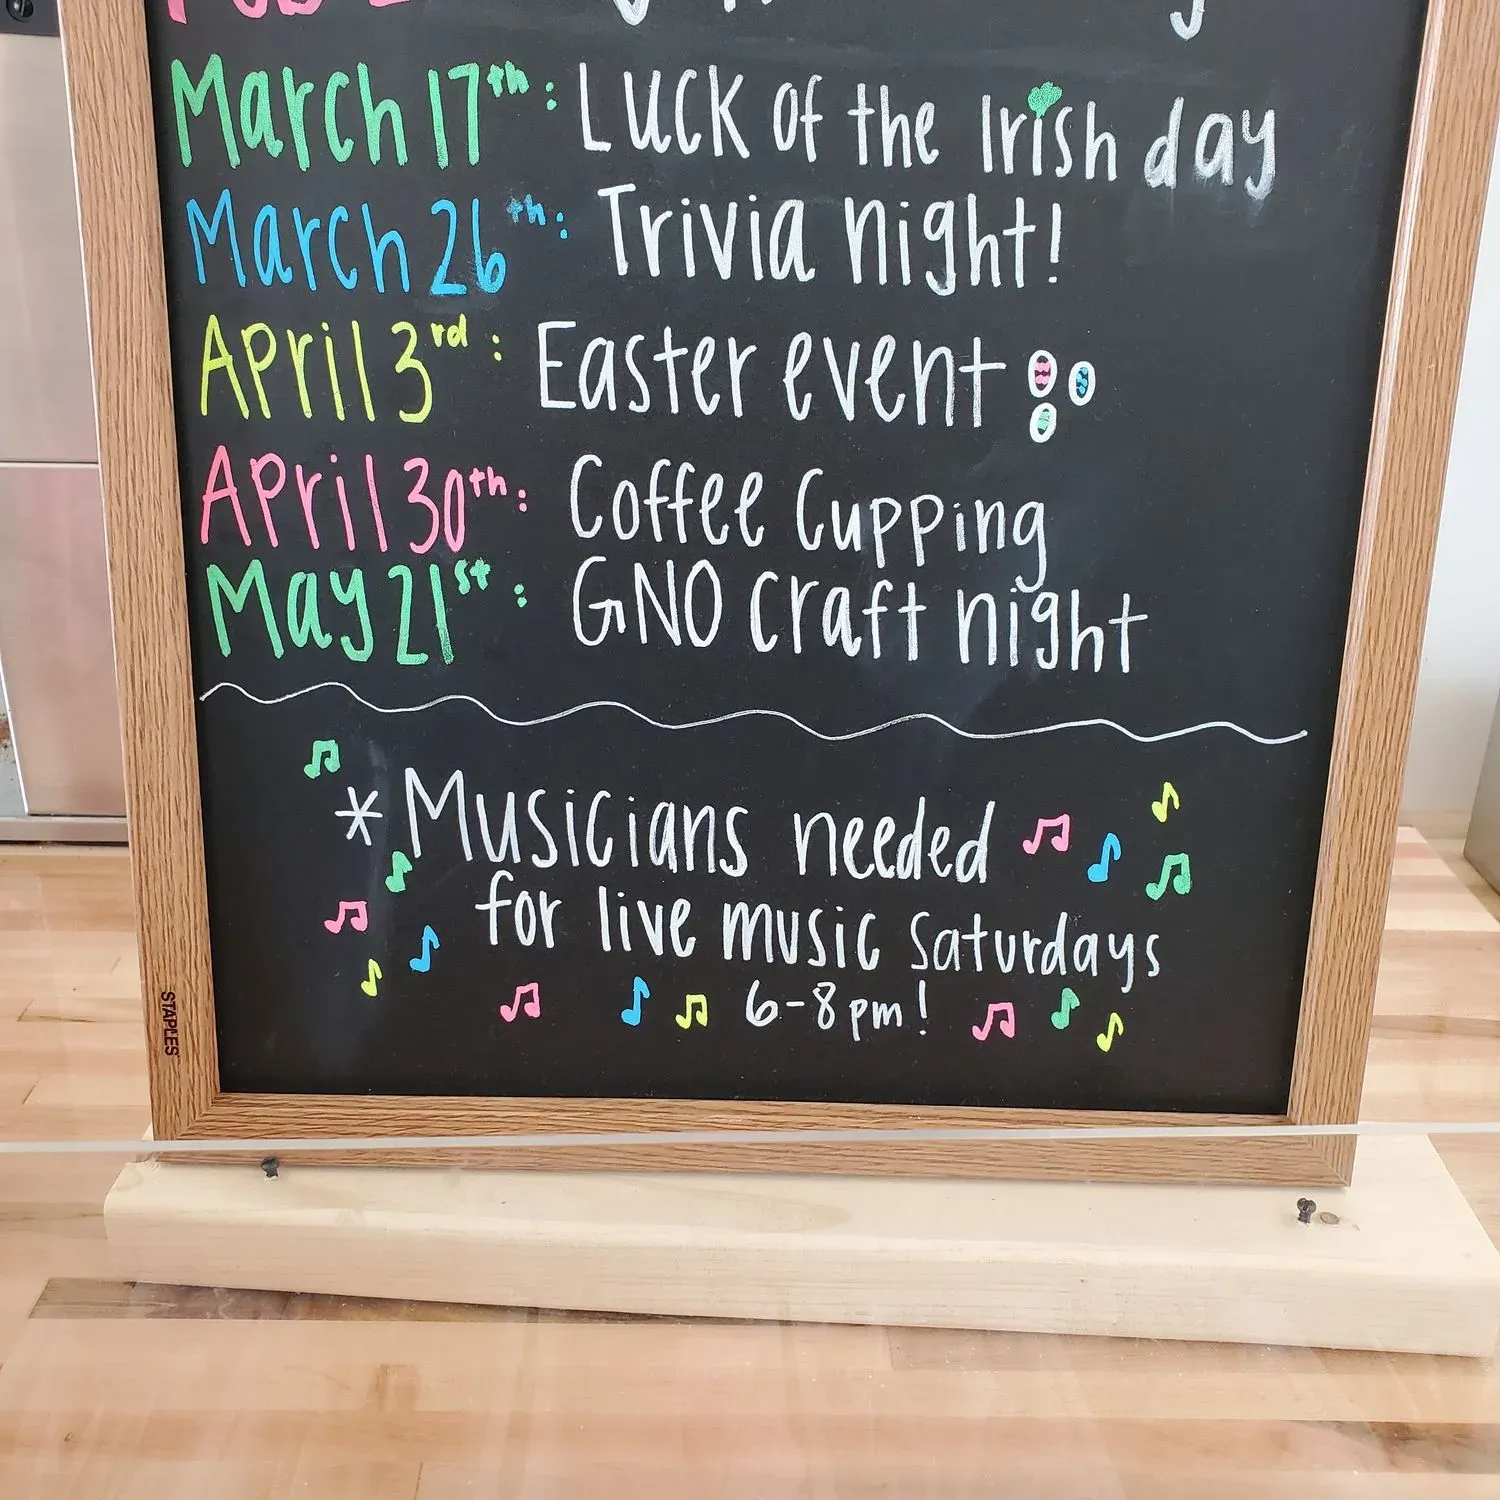 March 17th: Luck of the Irish day
March 26th: Trivia night!
April 3rd: Easter event
April 30th: Coffee Cupping
May 21st: GNO craft night
* Musicians needed
for live music Saturdays
6-8pm!
STAPLES